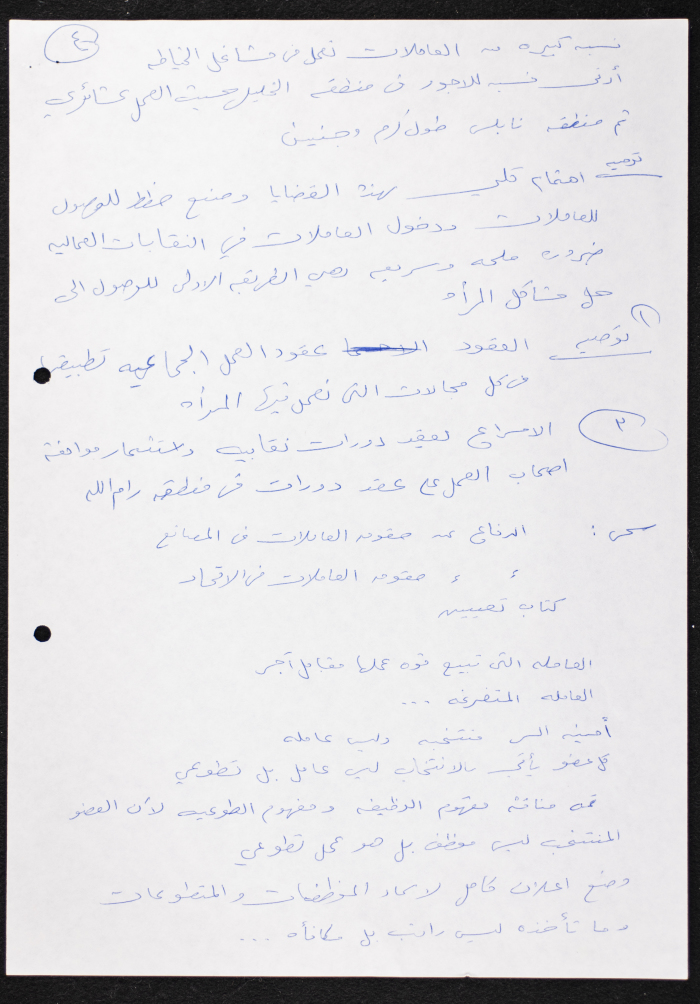 ٤
نسبه كبيره من العاملات تعمل في مشاغل الخياطه
أدنى نسبه للاجور في منطقه الخليل حيث العمل عشائري
ثم منطقه نابلس طولكرم وجنين
توصيه اهتمام بهذه القضايا وضع خطط للوصول
للعاملات ودخول العاملات في النقابات العماليه
ضروره ملحه وسريعه وهي الطريقه الاولى للوصول الى
حل مشاكل المرأه
توصيه العقود عقود العمل الجماعيه تطبيقها
في كل مجالات التي تعمل فيها المرأه
٣ الاسراع لعقد دورات نقابيه واستثمار موافقة
اصحاب العمل على عقد دورات في منطقه رام الله
سحر : الدفاع عن حقوق العاملات في المصانع
ء ء حقوق العاملات في الاتحاد
كتاب تعيين
العامله التي تبيع قوه عملها مقابل أجر
العامله المتفرغه ...
أمينه السر منتخبه وليس عامله
كل عضو يأتي بالانتخاب ليس عامل بل تطوعي
مناقشة مفهوم الوظيفه ومفهوم الطوعيه لأن العضو
المنتخب ليس موظف بل هو عمل تطوعي
وضع اعلان كامل لاسماء الموظفات والمتطوعات
وما تأخذه ليس راتب بل مكافأه ...